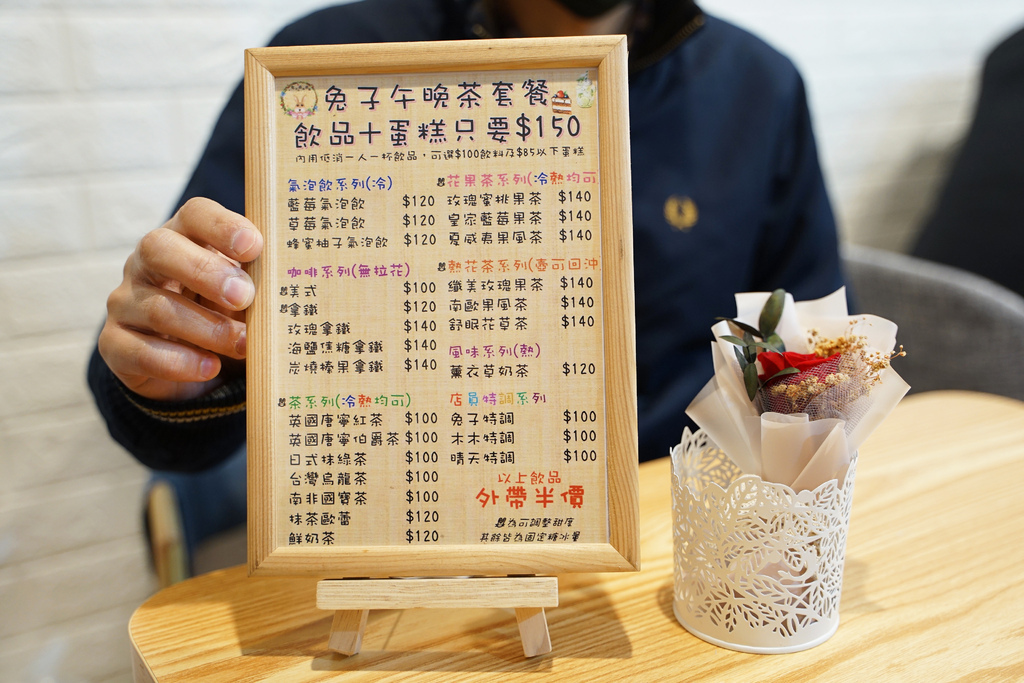 兔子午晚茶套餐
飲品十蛋糕只要$150
內用低消一人一杯飲品,可選$100飲料及$85以下蛋糕
氣泡飲系列(冷)
藍莓氣泡飲 $120
草莓氣泡飲 $120
蜂蜜柚子氣泡飲 $120
咖啡系列(無拉花)
美式 $100
拿鐵 $120
玫瑰拿鐵 $140
海鹽焦糖拿鐵 $140
炭燒榛果拿鐵 $140
茶系列(冷熱均可)
英國唐寧紅茶 $100
英國唐寧伯爵茶 $100
日式抹綠茶 $100
台灣烏龍茶 $100
南非國寶茶 $100
抹茶歐蕾 $120
鮮奶茶 $120
花果茶系列(冷熱均可
玫瑰蜜桃果茶 $140
皇家藍莓果茶 $140
夏威夷果風茶 $140
熱花茶系列(壺可回沖
纖美玫瑰果茶 $140
南歐果風茶 $140
舒眠花草茶 $140
風味系列(熱)
薰衣草奶茶 $120
店員特調系列
兔子特調 $100
木木特調 $100
晴天特調 $100
以上飲品
外帶半價
為可調整甜度
其餘皆為固定糖冰量